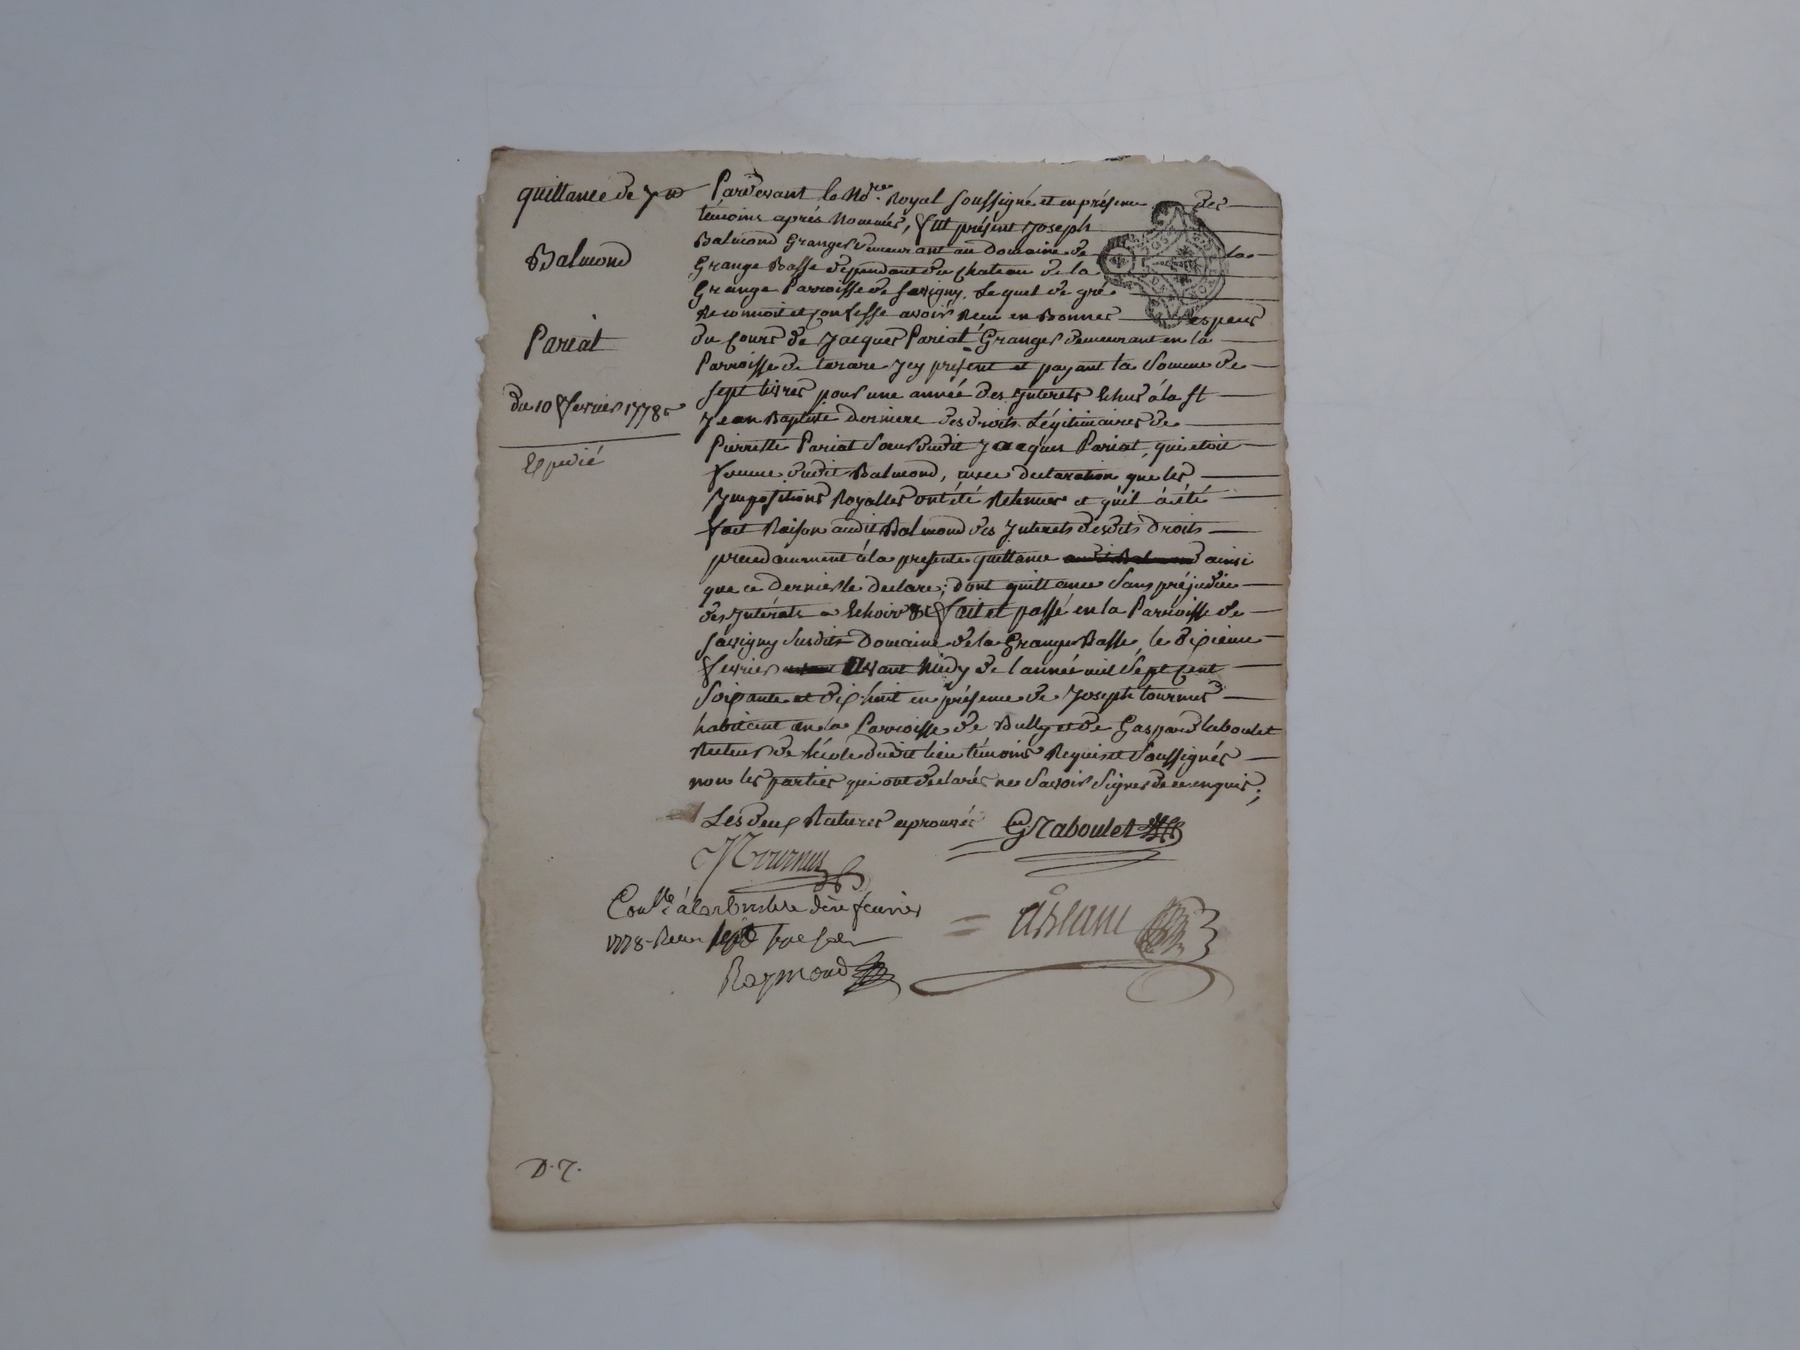 quittance de 7 ₶
Balmond
Pariat
du 10 fevrier 1778
Expedié
Pardevant le No.re Royal soussigné et en présence des
témoins après nommés, fût présent Joseph
Balmond Granger demeurant au Domaine de la
Grange Basse dépendant du Chateau de la
Grange Parroisse de Savigny. Lequel de gré
Reconnoit et confesse avoir Recu en Bonnes especes
du Cours de Jacques Pariat Granger demeurant en la
Parroisse de tarare Icy present et payant la somme de
sept livres pour une année des Interets Echus à la st
Jean Baptiste derniere des droits Légitimaires de
Pierrette Pariat soeur dudit Jacques Pariat, qui etoit
femme dudit Balmond, avec declaration que les
Impositions Royalles ont été Retenues et qu'il à été
fait Raison audit Balmond des Interets desdits droits
precedamment à la presente quittance audit Balmond ainsi
que ce dernier le declare; dont quittance sans préjudice
des Intérêts a Echoir &c fait et passé en la Parroisse de
Savigny susdit Domaine de la Grange Basse, le dixieme
fevrier avant Avant Midy de l'année mil sept cent
soixante et dix huit en présence de Joseph tournus
habitant en la Parroisse de Bully et de Gaspard laboulet
Recteur de l'école dudit lieu témoins Requis et soussignés
non les parties qui ont declarés ne savoir signer de ce enquis;
Les deux Ratures aprouvés
G Laboulet
J Tournus
Con.lé à larbresle fevrier
1778 Recu sept
Raymond
D. 7.